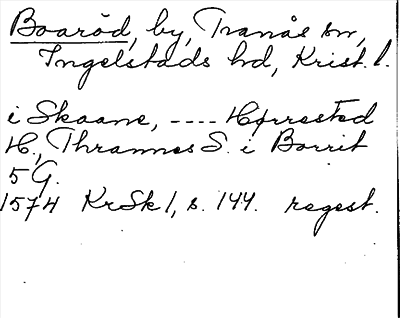 Boaröd, by, Tranås sn,
Ingelstads hd, Krist. l.
i Skaane, ---- Herrested
H., Thrannes S. i Borrit
5 G.
1574 KrSk 1, s. 144. regest.